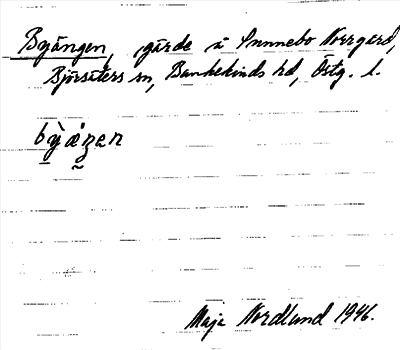 Byängen, gärde å Sunnebo Norrgård,
Björsäters sn, Bankekinds hd, Östg. l.
bỳæ̀ŋen
Maja Nordlund 1946.